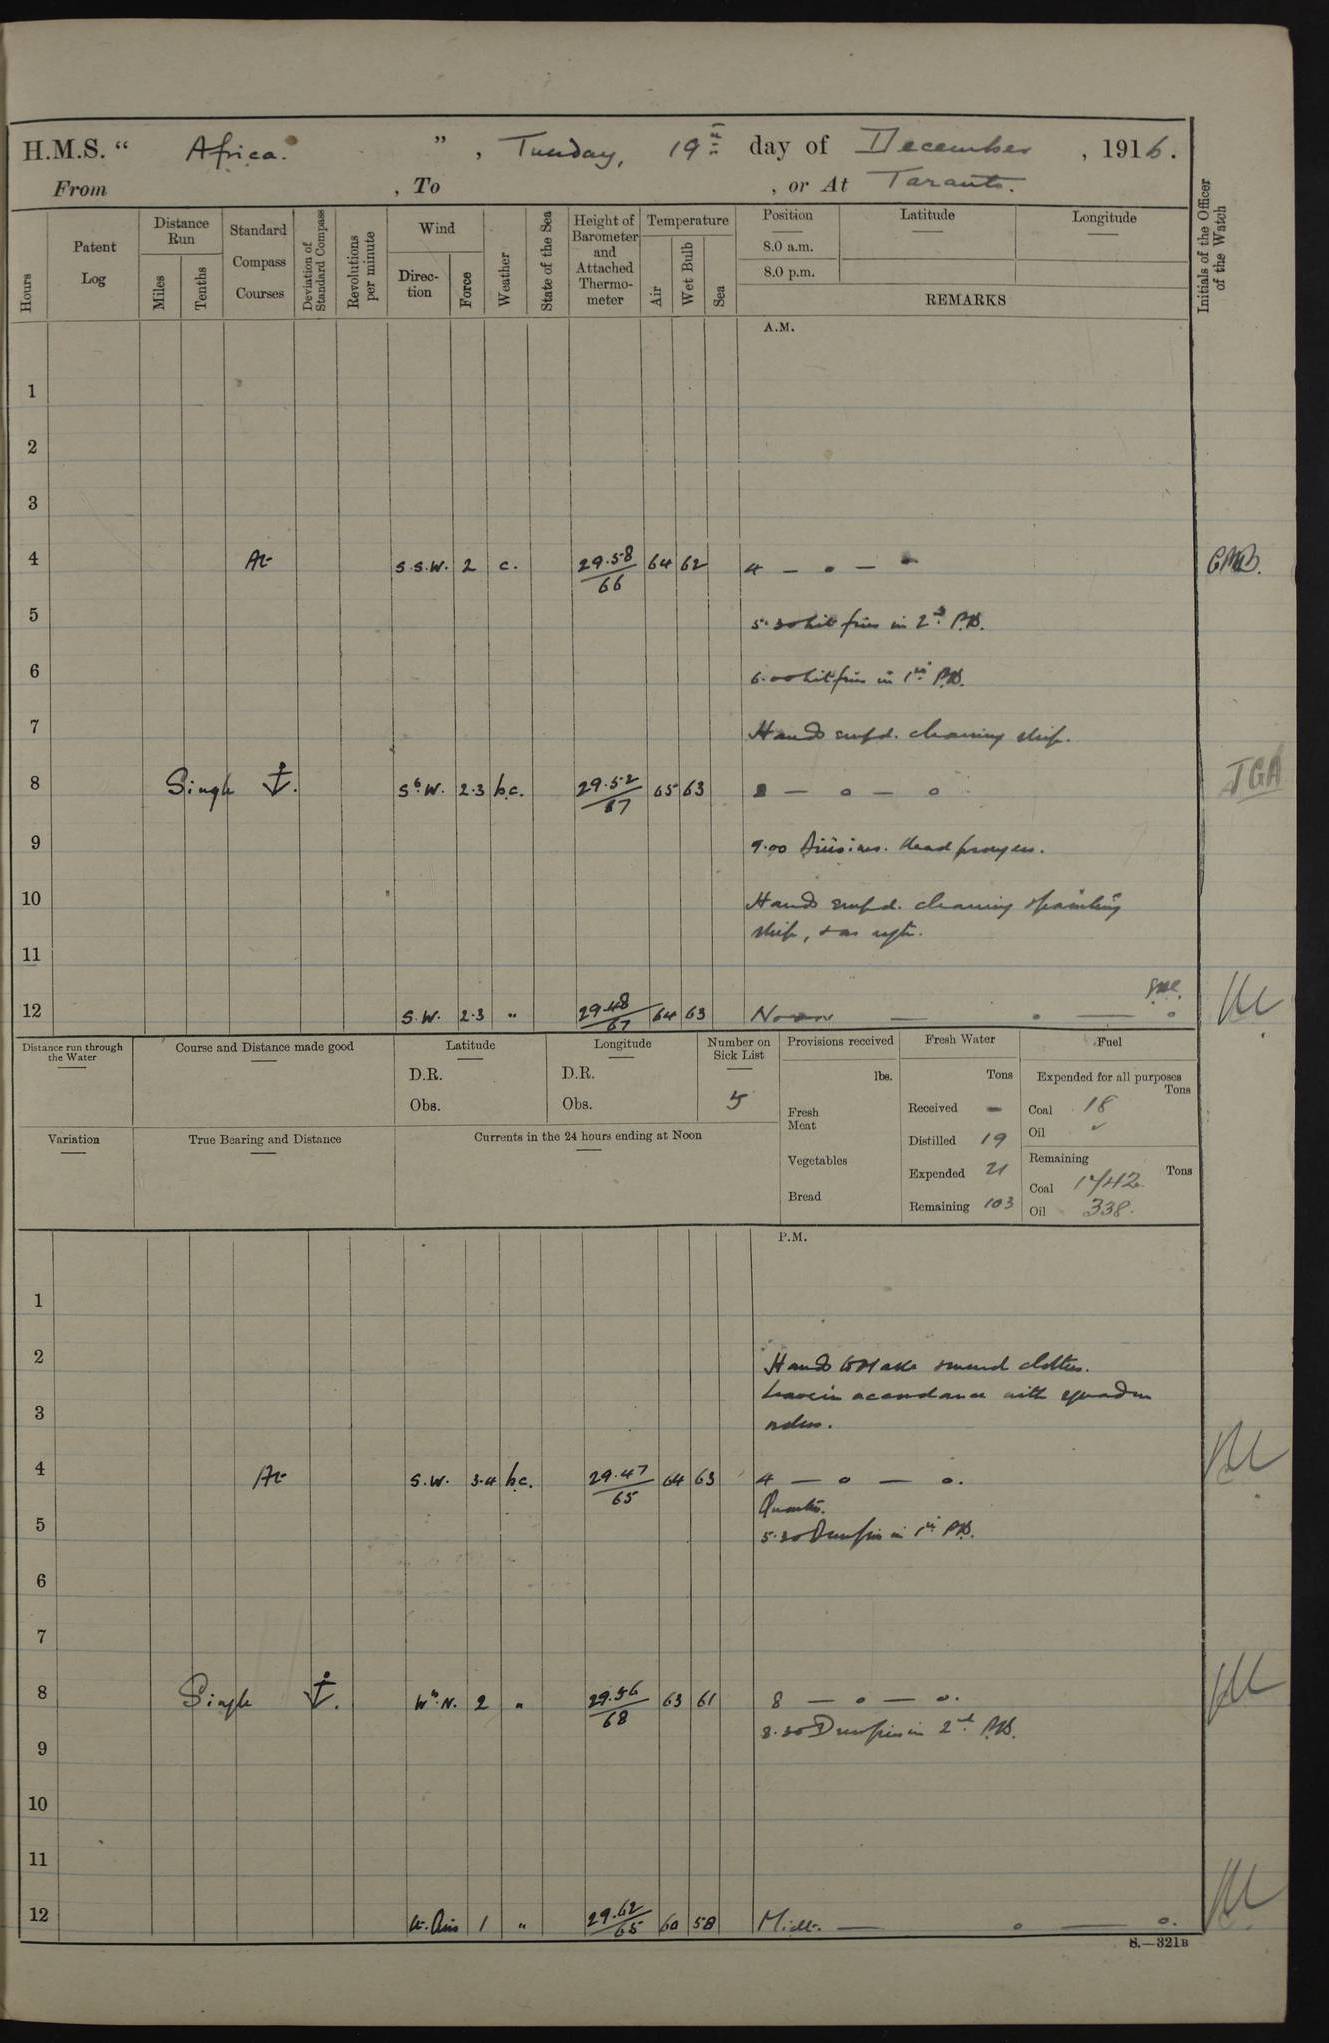 H.M.S. “ Africa. ” , Tuesday, 19th day of December , 1916.
From , To , or At Taranto.
Hours
Patent Log
Distance Run
Miles
Tenths
Standard Compass Courses
Deviation of Standard Compass
Revolutions per minute
Wind
Direction
Force
Weather
State of the Sea
Height of Barometer and Attached Thermometer
Temperature
Air
Wet Bulb
Sea
Position
Latitude
Longitude
8.0 a.m.
8.0 p.m.
REMARKS
Initials of the Officer of the Watch
A.M.
1
2
3
4 At S.S.W. 2 c. 29.58/66 64 62 4 — o — o
5 5.30 Lit fires in 2nd P.B.
6 6.00 Lit fires in 1st P.B.
7 Hands empd. cleaning ship.
8 Single ⚓. S b W. 2.3 b.c. 29.52/67 65 63 8 — o — o JGA
9 9.00 Divisions. Read prayers.
10 Hands empd. cleaning & painting
ship, & as reqte.
11
12 S.W. 2.3 " 29.48/67 64 63 Noon — o — o
Distance run through the Water
Course and Distance made good
Latitude
D.R.
Obs.
Longitude
D.R.
Obs.
Number on Sick List
5
Provisions received
lbs.
Fresh Meat
Vegetables
Bread
Fresh Water
Tons
Received —
Distilled 19
Expended 21
Remaining 103
Fuel
Expended for all purposes
Tons
Coal 18
Oil ✓
Remaining
Tons
Coal 1742
Oil 338.
Variation
True Bearing and Distance
Currents in the 24 hours ending at Noon
P.M.
1
2 Hands to make & mend clothes.
Leave in accordance with squadron
3 orders.
4 At S.W. 3.4 b.c. 29.47/65 64 63 4 — o — o.
Quarters.
5 5.30 Drew fires in 1st P.B.
6
7
8 Single ⚓. W b N. 2 " 29.56/68 63 61 8 — o — o.
8.30 Drew fires in 2nd P.B.
9
10
11
12 Lt. Airs 1 " 29.62/65 60 58 Midt. — o — o.
S.—321B